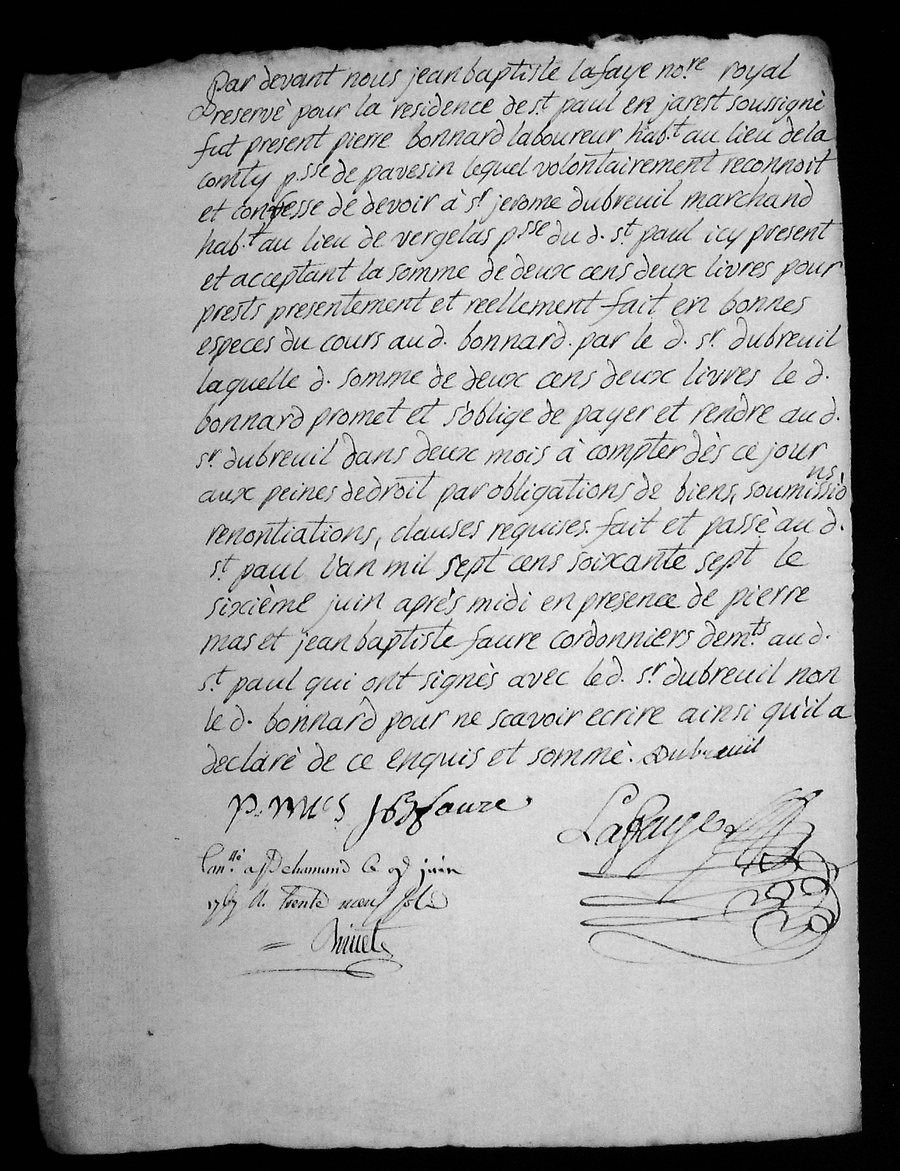 Par devant nous jean baptiste lafaye no.re royal
reservé pour la residence de st. paul en jarest soussigné
fut present pierre bonnard laboureur hab.t au lieu de la
comty p.sse de pavesin lequel volontairement reconnoit
et confesse de devoir à sr. jerome dubreuil marchand
hab.t au lieu de vergelas p.sse du d. st. paul icy present
et acceptant la somme de deux cens deux livres pour
prests presentement et reellement fait en bonnes
especes du cours au d. bonnard. par le d. sr. dubreuil
laquelle d. somme de deux cens deux livres le d.
bonnard promet et s'oblige de payer et rendre au d.
sr. dubreuil dans deux mois à compter dès ce jour
aux peines de droit par obligations de biens, soumissiòns
renontiations, clauses requises. fait et passé au d.
st. paul l'an mil sept cens soixante sept le
sixième juin après midi en presence de pierre
mas et jean baptiste faure cordonniers dem.ts au d.
st. paul qui ont signés avec le d. sr. dubreuil non
le d. bonnard pour ne scavoir ecrire ainsi qu'il a
declaré de ce enquis et sommé. Dubreuil
p. mas JB faure
Lafaye
Con.llé a st Chamond le juin
1767 R. trente neuf sols